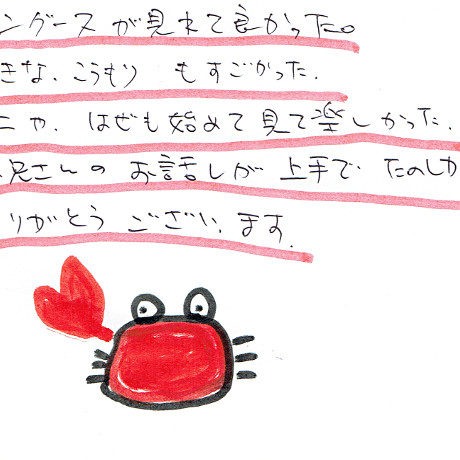 ングースが見れて良かった。
きな、こうもり もすごかった.
ニや、はぜも始めて見て楽しかった.
兄さんのお話しが上手で、たのしか
りがとう ございます.